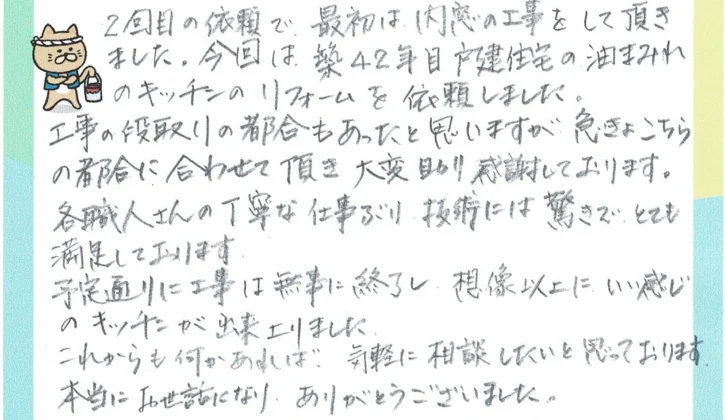 2回目の依頼で、最初は、内窓の工事をして頂き
ました。今回は、築42年目戸建住宅の油まみれ
のキッチンのリフォームを依頼しました。
工事の段取りの都合もあったと思いますが、急きょこちら
の都合に合わせて頂き、大変助り感謝しております。
各職人さんの丁寧な仕事ぶり、技術には驚きで、とても
満足しております。
予定通りに工事は無事に終了し、想像以上にいい感じ
のキッチンが出来上りました。
これからも何かあれば、気軽に相談したいと思っております。
本当にお世話になり、ありがとうございました。